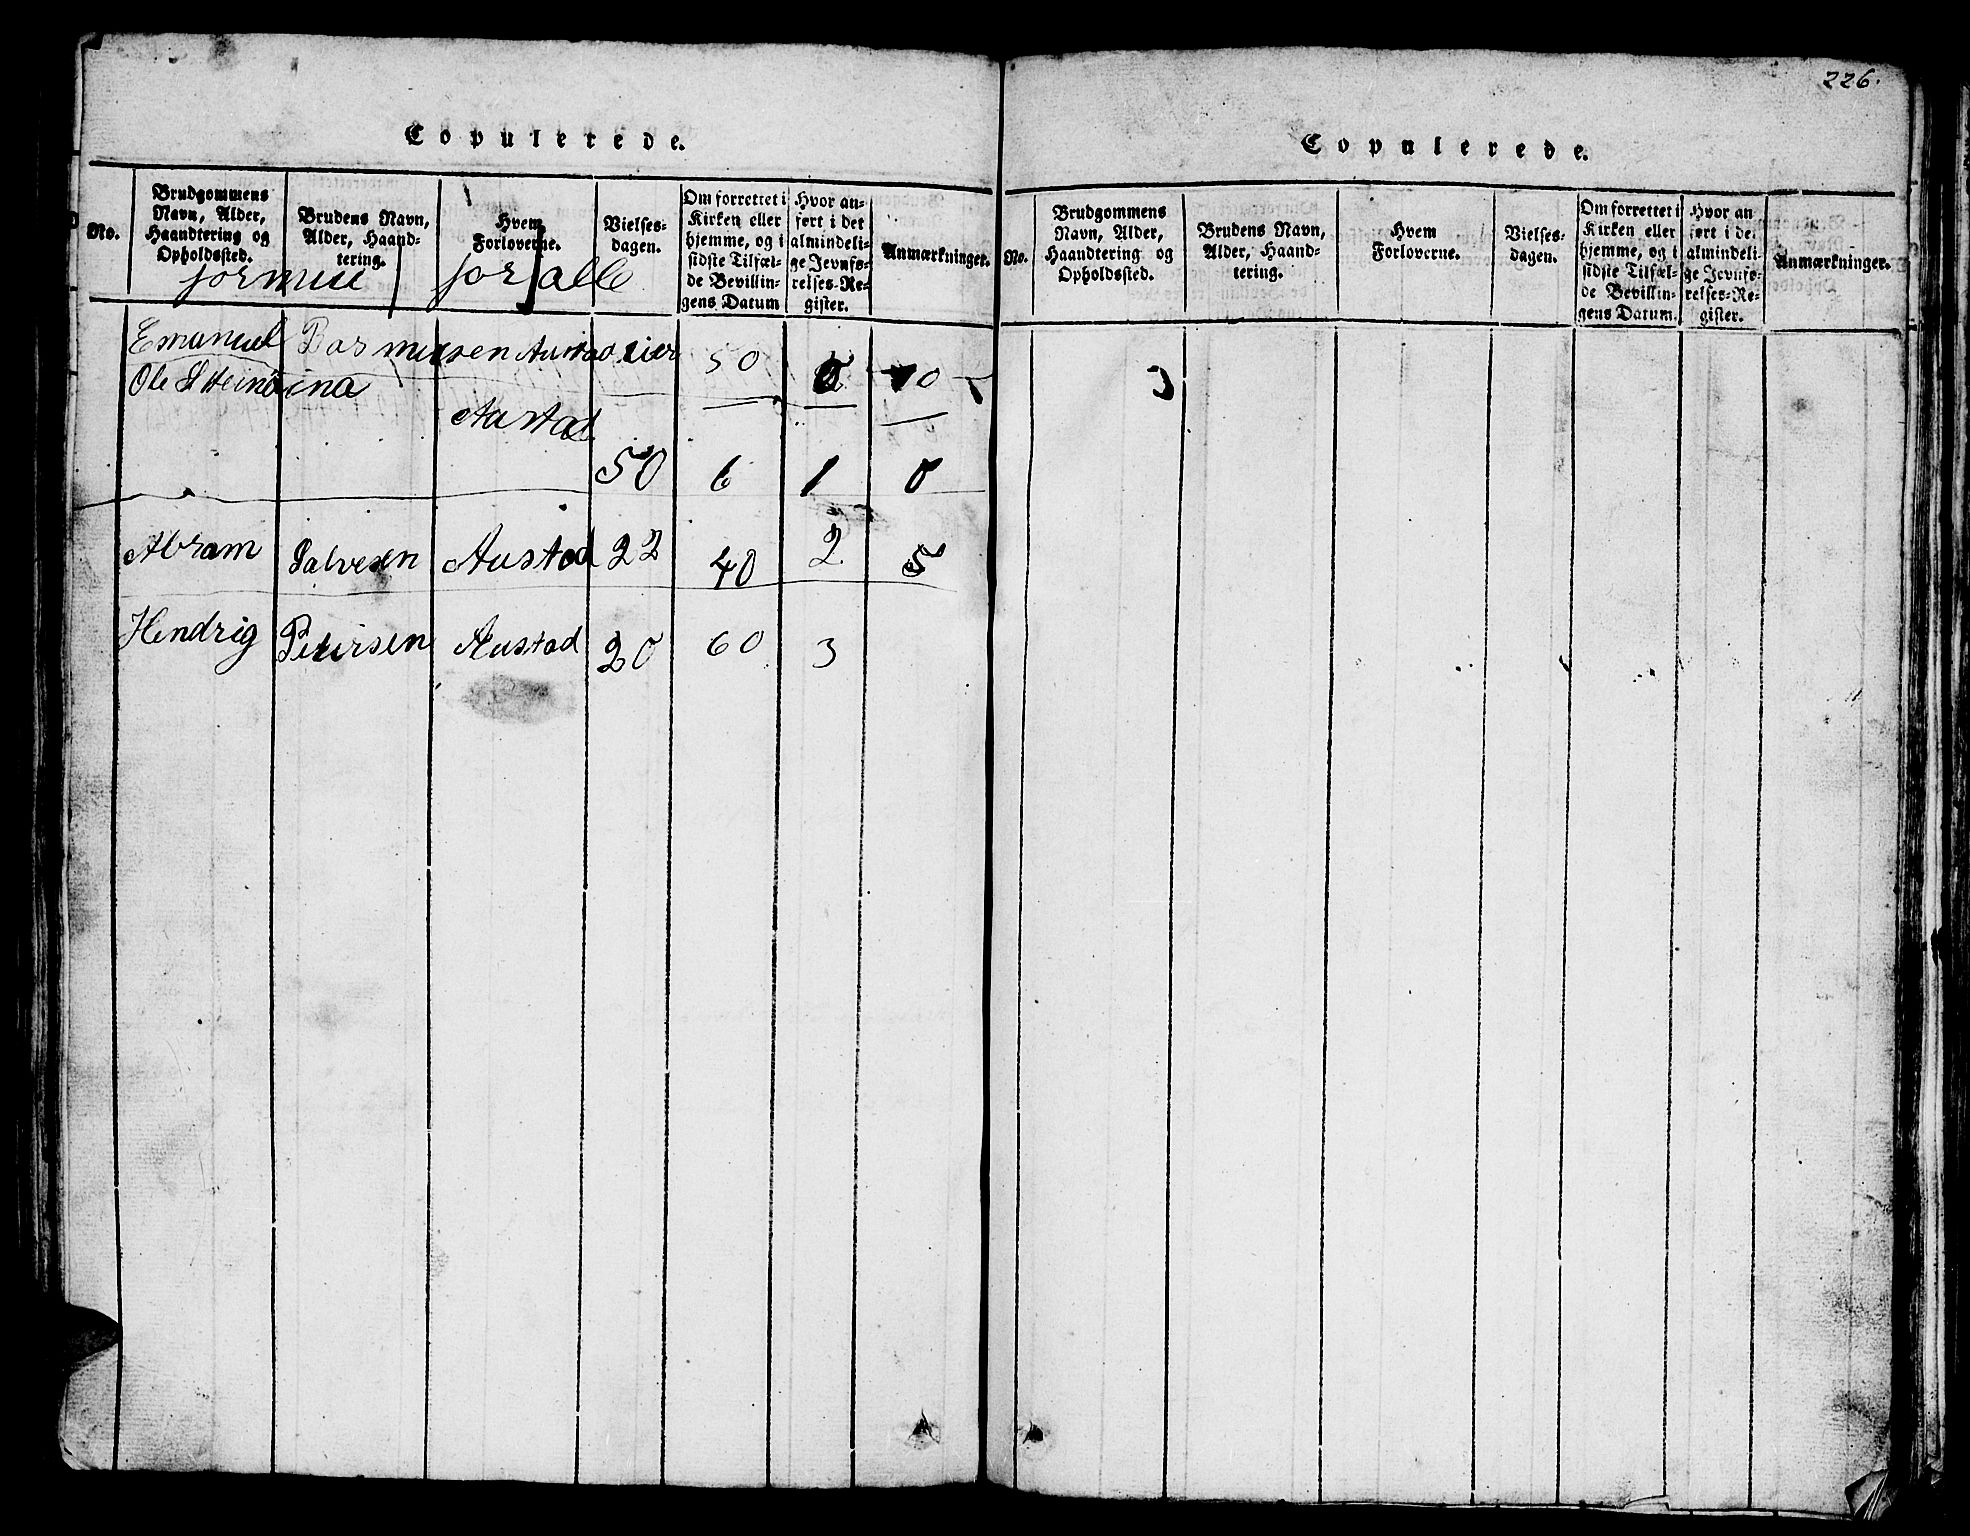 226.
Copulerede.
No.
Brudgommens
Navn, Alder,
Haandtering og
Opholdssted.
Brudens Navn,
Alder, Haand-
tering.
Hvem
Forloverne.
Vielses-
dagen.
Om forrettet i
Kirken eller
hjemme, og i
sidste Tilfæl-
de Bevillin-
gens Datum
Hvor an-
ført i det
almindeli-
ge Jevnfø-
relses-Re-
gister.
Anmærkninger.
for alle
Emanuel Austad 50 0 10
Ole
Austad
50 6 1 0
Abram Salvesen Austad 22 40 2 5
Hendrig Petersen Austad 20 60 3
Copulerede.
No.
Brudgommens
Navn, Alder,
Haandtering og
Opholdssted.
Brudens Navn,
Alder, Haand-
tering.
Hvem
Forloverne.
Vielses-
dagen.
Om forrettet i
Kirken eller
hjemme, og i
sidste Tilfæl-
de Bevillin-
gens Datum.
Hvor an
ført i det
almindeli-
ge Jevnfø-
relses-Re-
gister.
Anmærkninger.